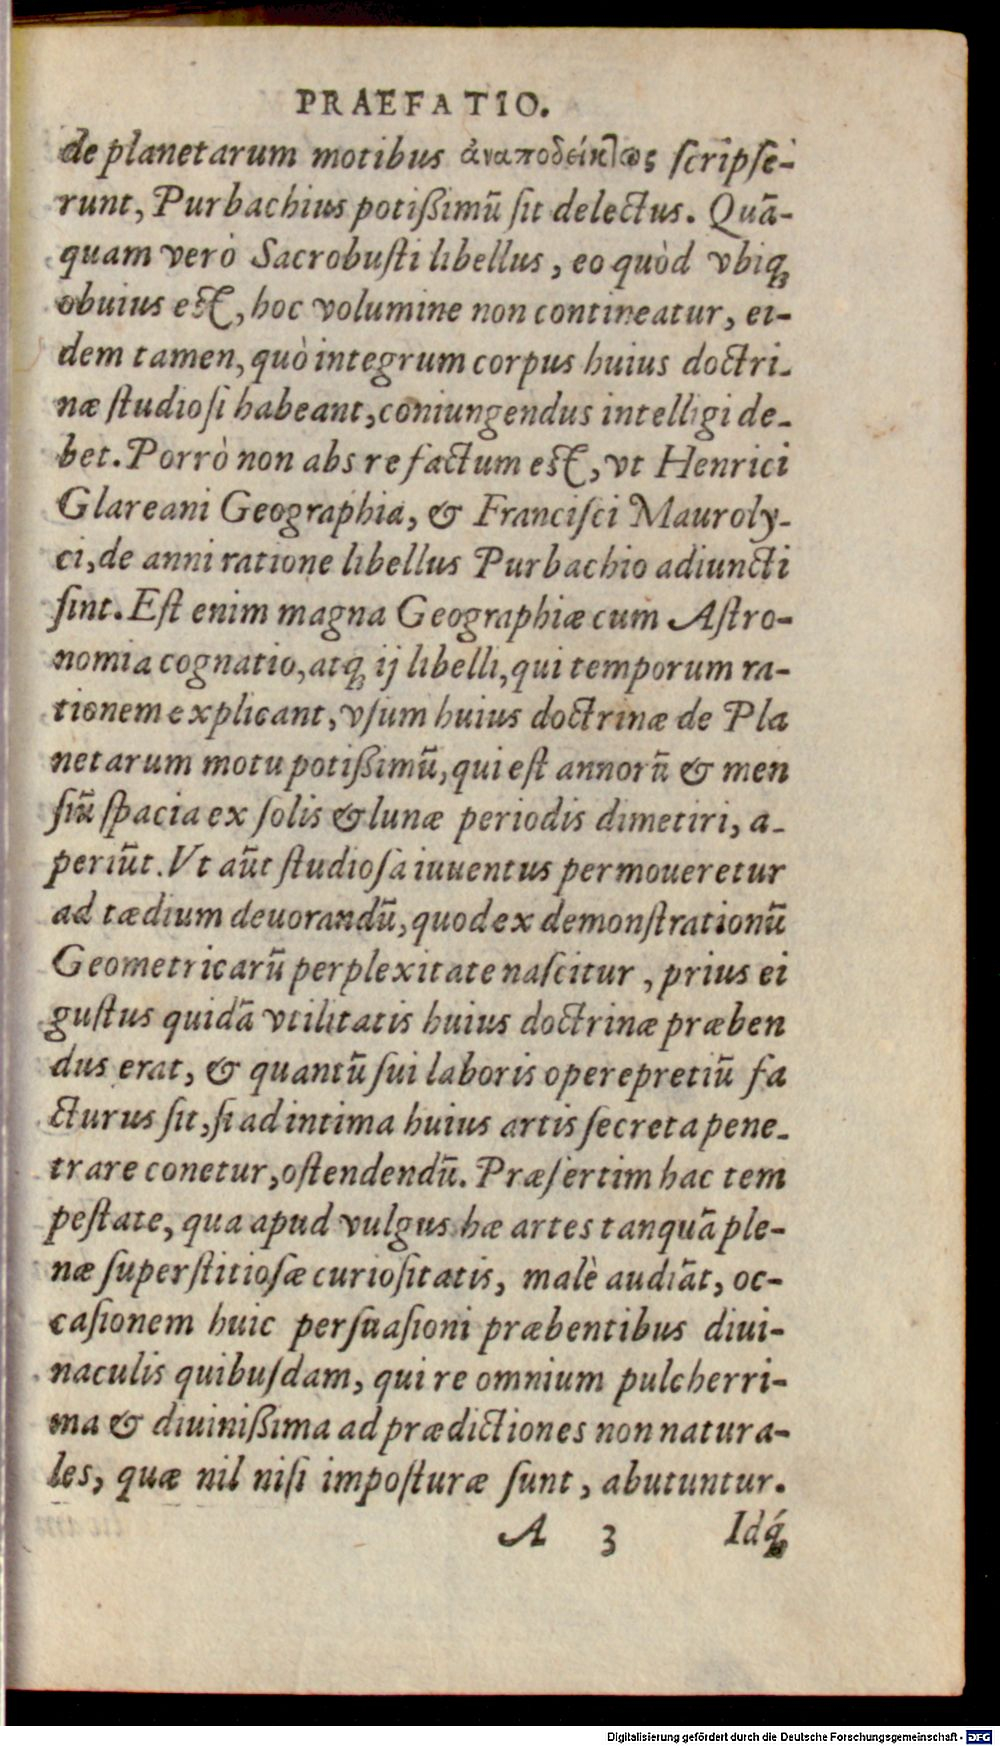 PRAEFATIO.
de planetarum motibus ἀναποδείκτως ſcripſe-
runt, Purbachius potißimũ ſit delectus. Quã-
quam verò Sacrobuſti libellus, eo quòd vbiq;
obuius eſt, hoc volumine non contineatur, ei-
dem tamen, quò integrum corpus huius doctri-
næ ſtudioſi habeant, coniungendus intelligi de-
bet. Porrò non abs re factum eſt, vt Henrici
Glareani Geographia, & Franciſci Mauroly-
ci, de anni ratione libellus Purbachio adiuncti
ſint. Eſt enim magna Geographiæ cum Aſtro-
nomia cognatio, atq; ij libelli, qui temporum ra-
tionem explicant, vſum huius doctrinæ de Pla
netarum motu potißimũ, qui eſt annorũ & men
ſiũ ſpacia ex ſolis & lunæ periodis dimetiri, a-
periũt. Vt aũt ſtudioſa iuuentus permoueretur
ad tædium deuorandũ, quod ex demonſtrationũ
Geometricarũ perplexitate naſcitur, prius ei
guſtus quidã vtilitatis huius doctrinæ præben
dus erat, & quantũ ſui laboris operepretiũ fa
cturus ſit, ſi ad intima huius artis ſecreta pene-
trare conetur, oſtendendũ. Præſertim hac tem
peſtate, qua apud vulgus hæ artes tanquã ple-
næ ſuperſtitioſæ curioſitatis, malè audiãt, oc-
caſionem huic perſuaſioni præbentibus diui-
naculis quibuſdam, qui re omnium pulcherri-
ma & diuinißima ad prædictiones non natura-
les, quæ nil niſi impoſturæ ſunt, abutuntur.
A 3 Idq́;
Digitalisierung gefördert durch die Deutsche Forschungsgemeinschaft - DFG